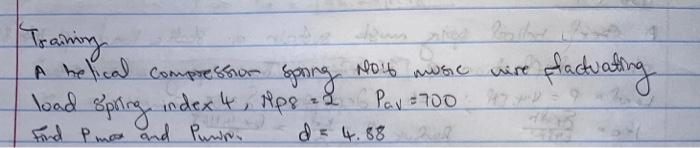 Training
A helical compression spring No16 music wire flactuating
load spring index 4, Nps = 2 Pav = 700
Find Pmax and Pmin. d = 4.88